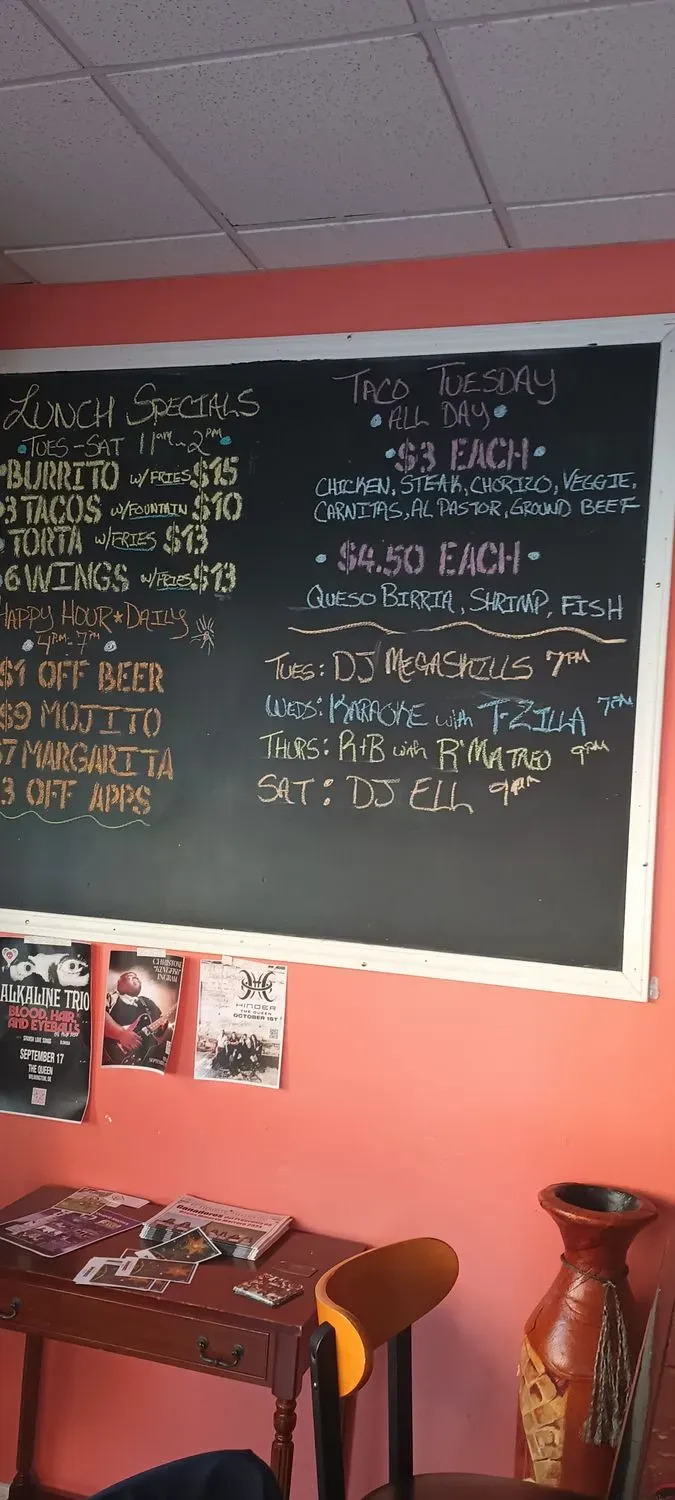 LUNCH SPECIALS
TUES-SAT 11am-2PM
BURRITO W/FRIES $15
3 TACOS W/FOUNTAIN $10
TORTA W/FRIES $13
6 WINGS W/FRIES $13
HAPPY HOUR DAILY
4PM-7PM
$1 OFF BEER
$9 MOJITO
$7 MARGARITA
3 OFF APPS
TACO TUESDAY
ALL DAY
$3 EACH
CHICKEN, STEAK, CHORIZO, VEGGIE,
CARNITAS, AL PASTOR, GROUND BEEF
$4.50 EACH
QUESO BIRRIA, SHRIMP, FISH
TUES: DJ MEGASKILLS 7PM
WEDS: KARAOKE with T-ZILLA 7PM
THURS: R+B with R'MATNEO 9PM
SAT: DJ ELL 9PM
ALKALINE TRIO
BLOOD, HAIR
AND EYEBALLS
SEPTEMBER 17
THE QUEEN
WILMINGTON, DE
"KINGFISH"
INGRAM
HINDER
THE QUEEN
OCTOBER 1ST
Ganadores